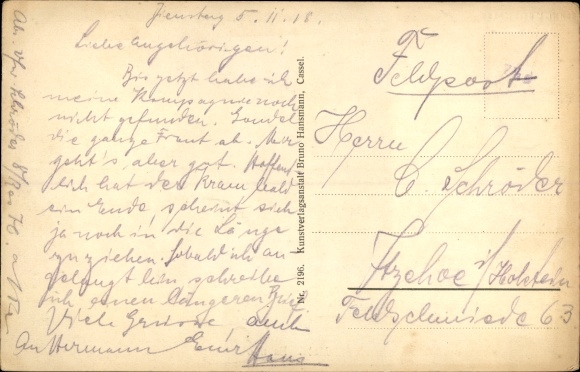 Dienstag 5. 11. 18.
Liebe Angehörigen!
Bis jetzt habe ich
meine Kompagnie noch
nicht gefunden. Gondel
die ganze Front ab. Mir
geht's aber gut. Hoffent
lich hat der Kram bald
ein Ende, scheint sich
ja noch in die Länge
zu ziehen. Sobald ich an
gelangt bin, schreibe
ich einen längeren Brief
Viele Grüsse, auch
an Hermann Euer Hans
Abs. Schröder
Nr. 2196. Kunstverlagsanstalt Bruno Hansmann, Cassel.
Feldpost
Herrn
C. Schröder
Itzehoe i/Holstein
Feldschmiede 63